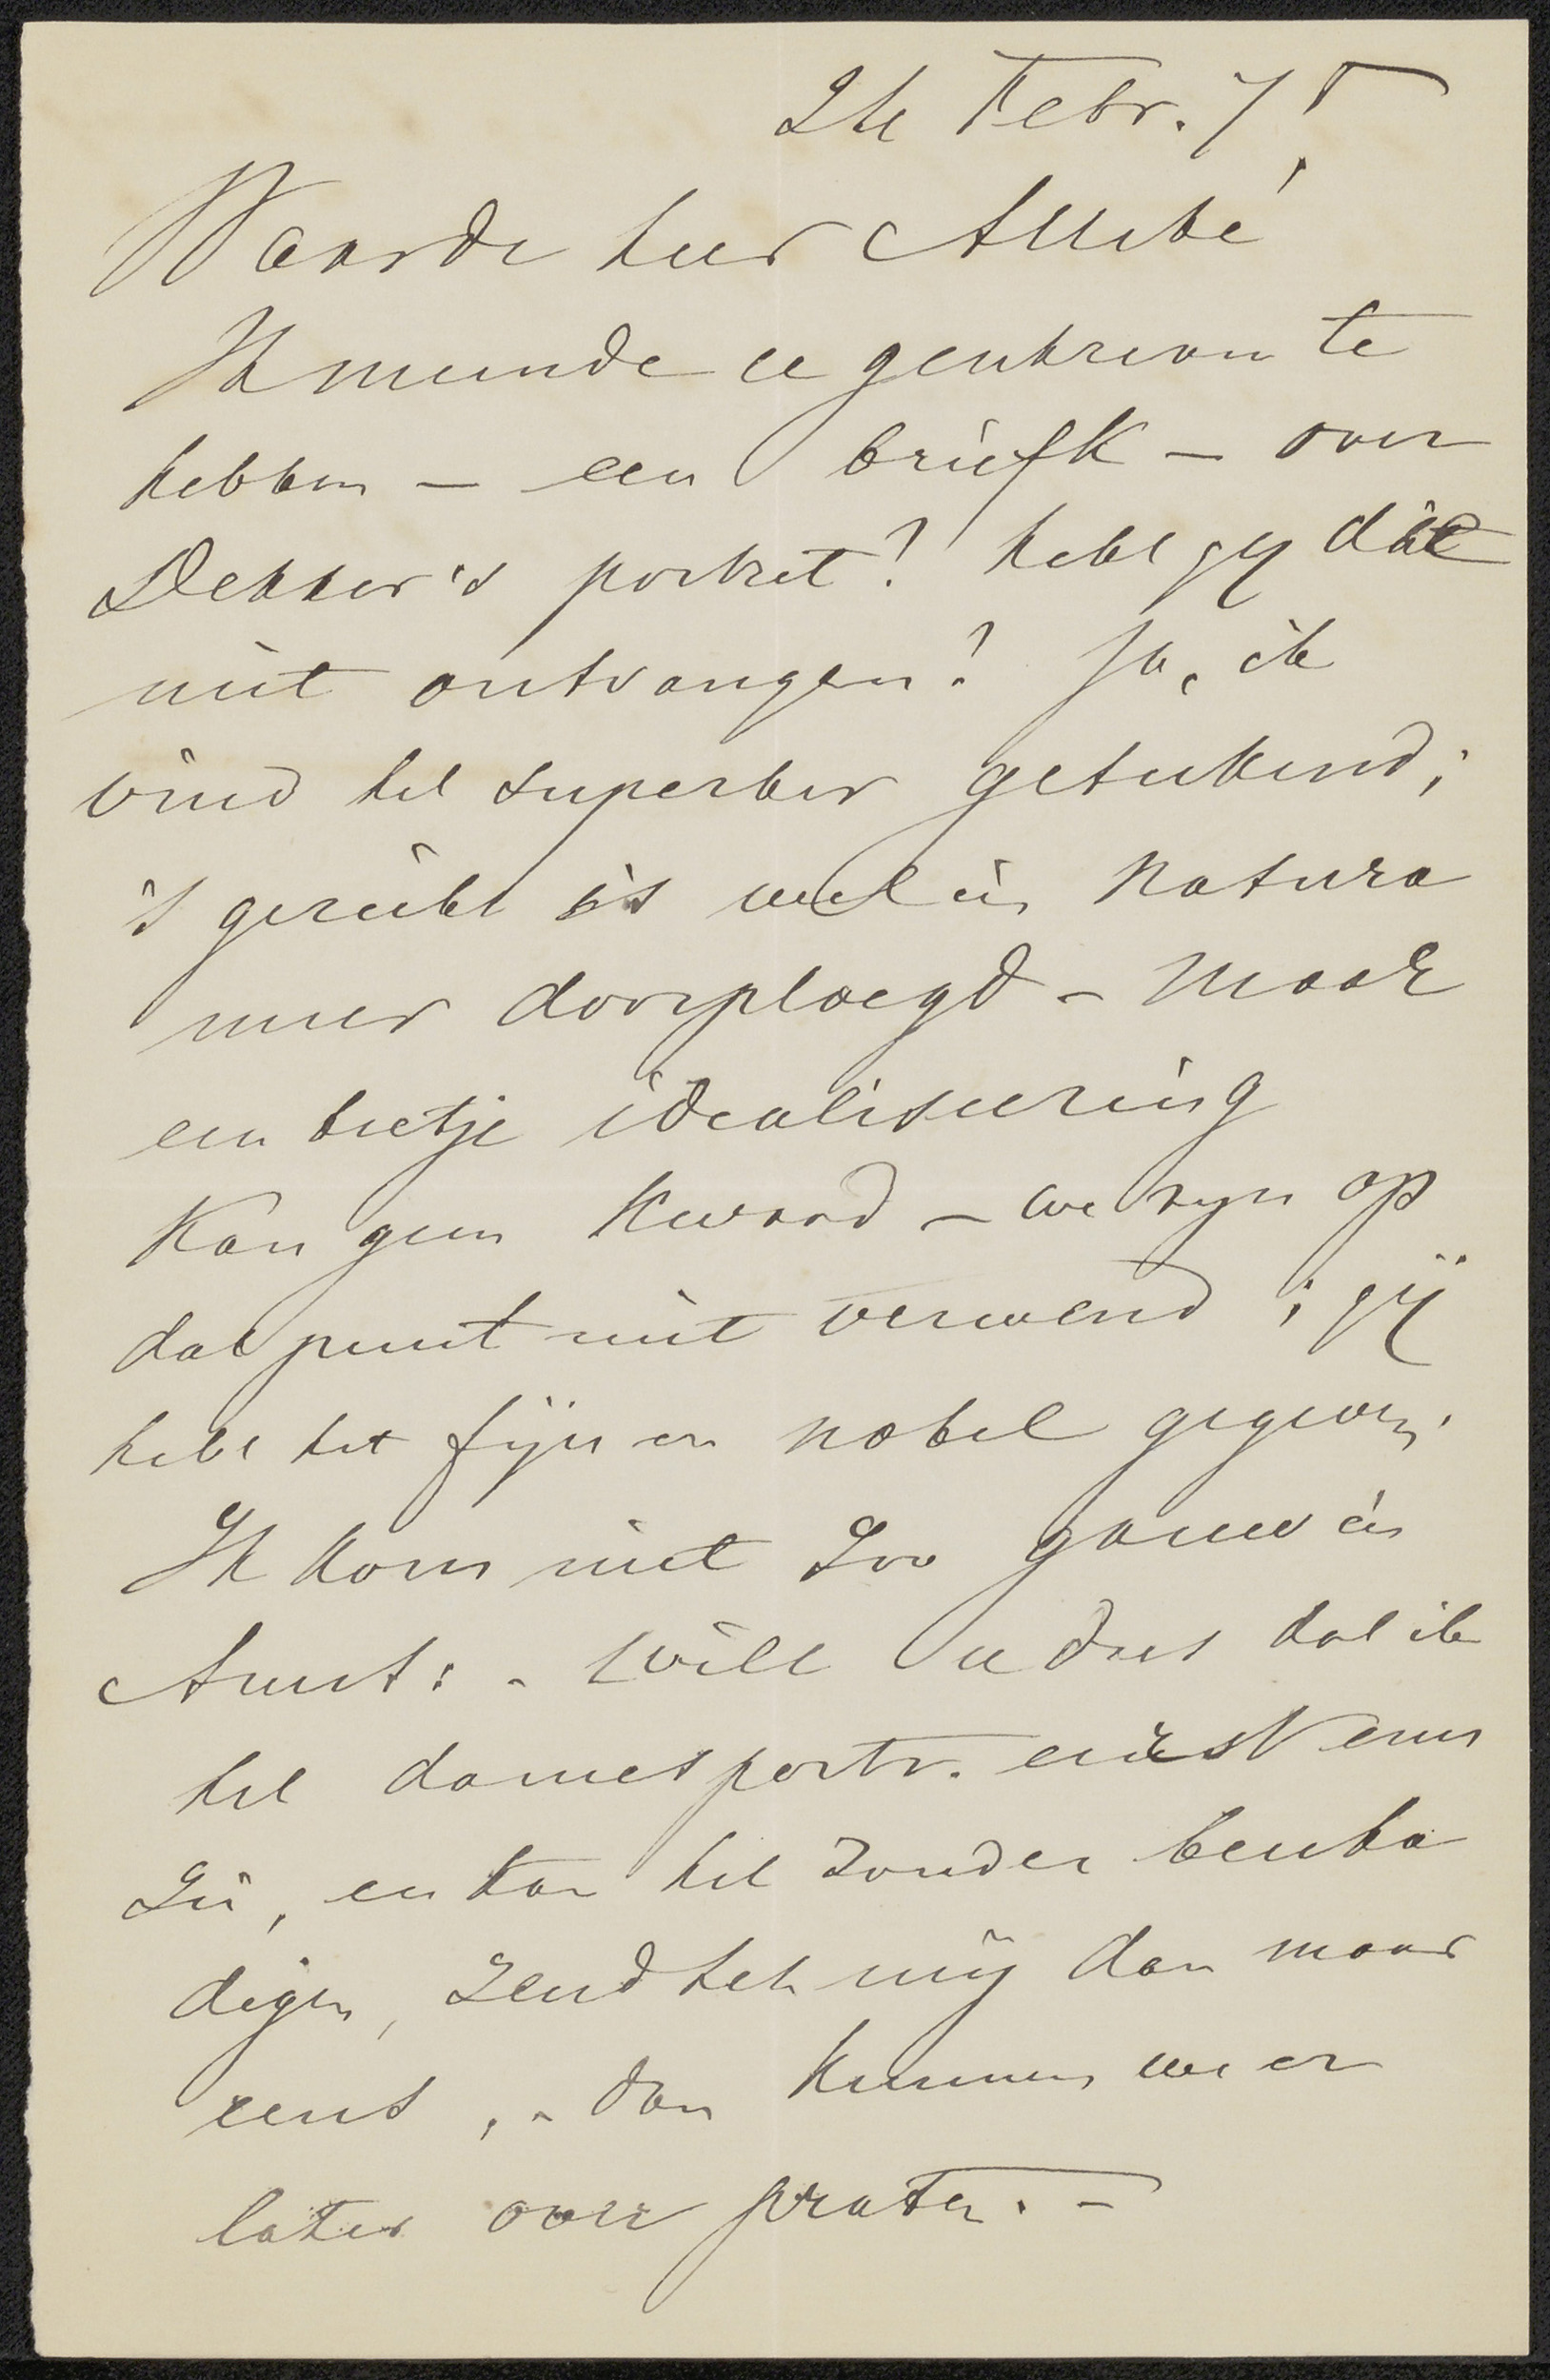 24 Febr. 75
Waarde heer Allebé
Ik meende u geschreven te
hebben — een briefk — over
Dekker's portret? hebt gij dát
niet ontvangen? Ja, ik
vind het superber geteekend;
't gezicht is wel in natura
meer doorploegd — maar
een beetje idealiseering
kan geen kwaad — we zijn op
dat punt niet verwend; gij
hebt het fijn en nobel gegeven.
Ik kom niet zoo gauw in
Amst: - Wilt u dus dat ik
het damesportr. eerst eens
zie, en kan het zonder bescha
digen, zend het mij dan maar
eens, - dan kunnen we er
later over praten. -